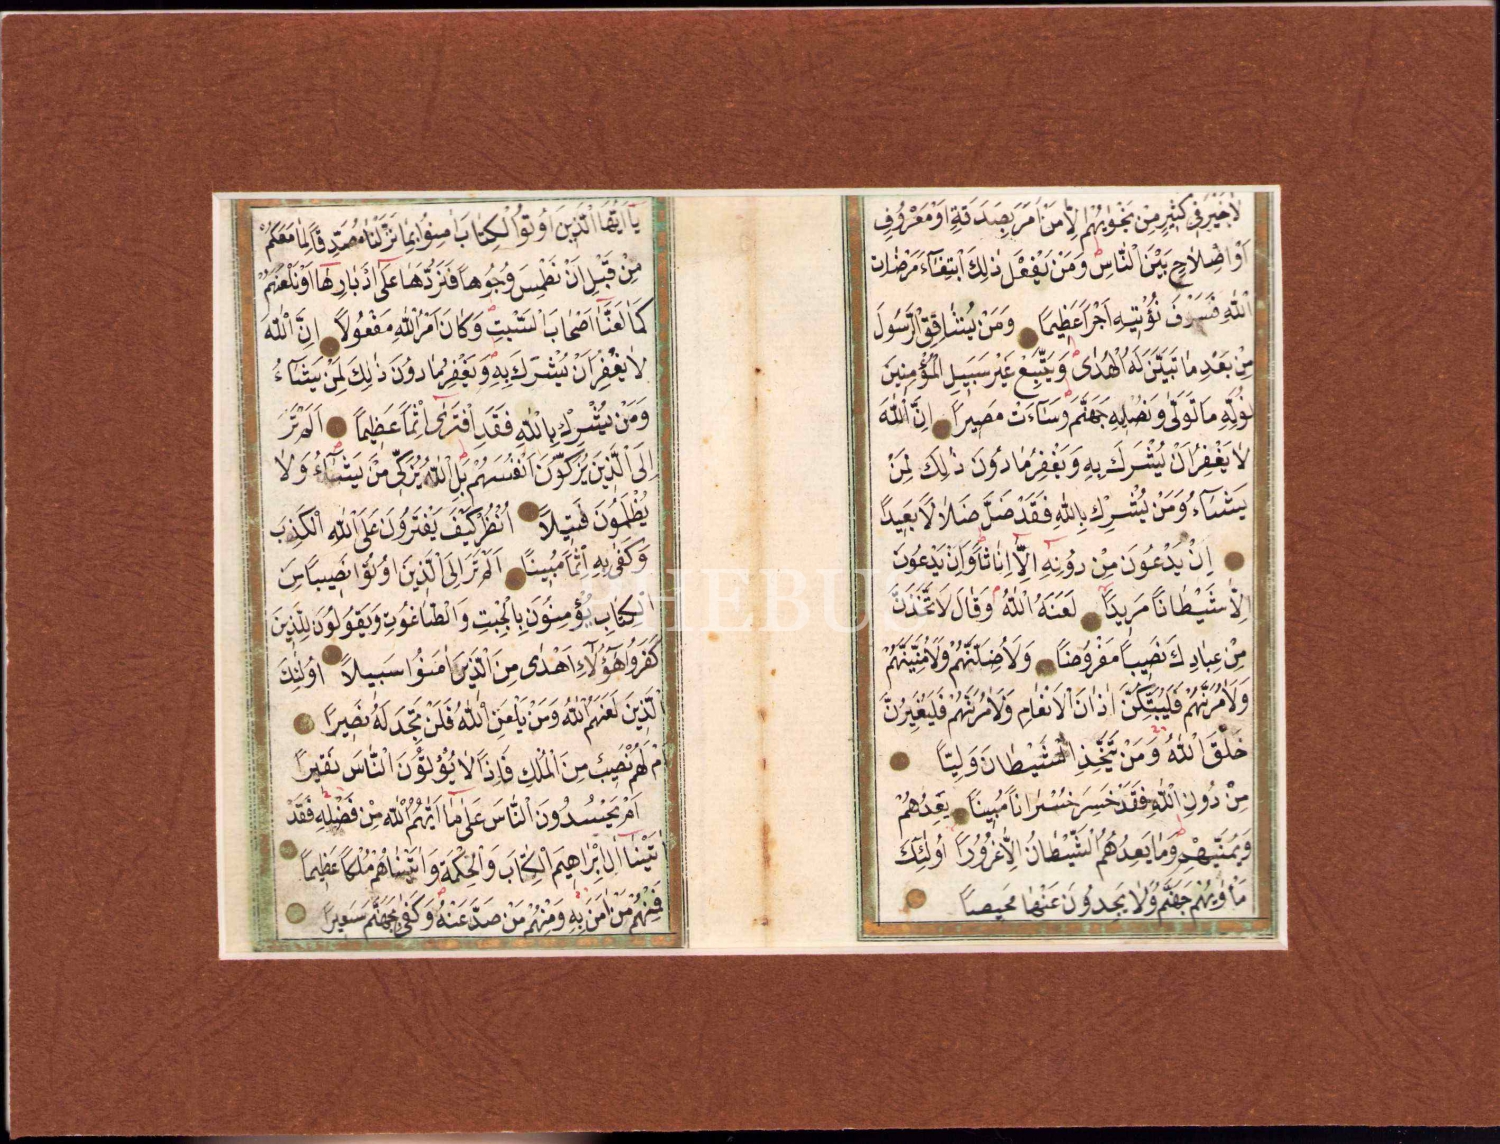 لا خير في كثير من نجويهم الا من امر بصدقة او معروف
او اصلاح بين الناس ومن يفعل ذلك ابتغاء مرضات
الله فسوف نؤتيه اجرا عظيما ومن يشاقق الرسول
من بعد ما تبين له الهدى ويتبع غير سبيل المؤمنين
نوله ما تولى ونصله جهنم وساءت مصيرا ان الله
لا يغفر ان يشرك به ويغفر ما دون ذلك لمن
يشاء ومن يشرك بالله فقد ضل ضلالا بعيدا
ان يدعون من دونه الا اناثا وان يدعون
الا شيطانا مريدا لعنه الله وقال لاتخذن
من عبادك نصيبا مفروضا ولاضلنهم ولامنينهم
ولامرنهم فليبتكن اذان الانعام ولامرنهم فليغيرن
خلق الله ومن يتخذ الشيطان وليا
من دون الله فقد خسر خسرانا مبينا يعدهم
ويمنيهم وما يعدهم الشيطان الا غرورا اولئك
ماويهم جهنم ولا يجدون عنها محيصا
يا ايها الذين اوتوا الكتاب امنوا بما نزلنا مصدقا لما معكم
من قبل ان نطمس وجوها فنردها على ادبارها او نلعنهم
كما لعنا اصحاب السبت وكان امر الله مفعولا ان الله
لا يغفر ان يشرك به ويغفر ما دون ذلك لمن يشاء
ومن يشرك بالله فقد افترى اثما عظيما الم تر
الى الذين يزكون انفسهم بل الله يزكي من يشاء ولا
يظلمون فتيلا انظر كيف يفترون على الله الكذب
وكفى به اثما مبينا الم تر الى الذين اوتوا نصيبا من
الكتاب يؤمنون بالجبت والطاغوت ويقولون للذين
كفروا هؤلاء اهدى من الذين امنوا سبيلا اولئك
الذين لعنهم الله ومن يلعن الله فلن تجد له نصيرا
ام لهم نصيب من الملك فاذا لا يؤتون الناس نقيرا
ام يحسدون الناس على ما اتيهم الله من فضله فقد
اتينا ال ابراهيم الكتاب والحكمة واتيناهم ملكا عظيما
فمنهم من امن به ومنهم من صد عنه وكفى بجهنم سعيرا
PHEBUS